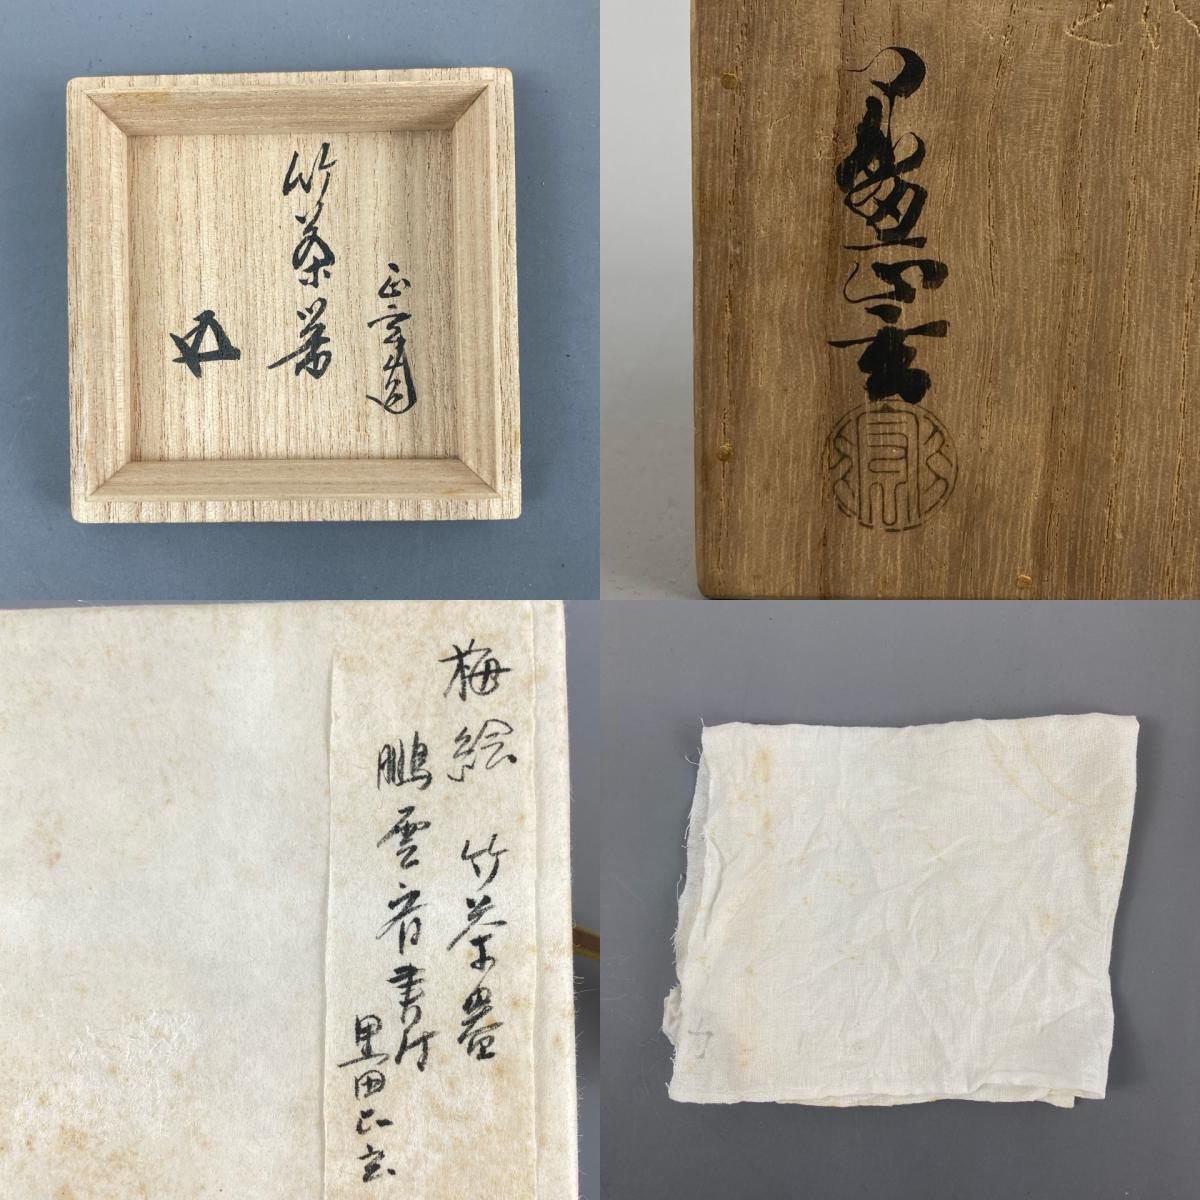 正玄造
竹茶器
黒田正玄
梅絵 竹茶器
鵬雲斎書付
黒田正玄